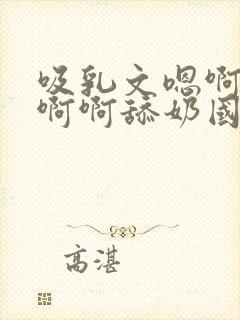 吸乳文嗯啊
啊啊舔奶国
高湛